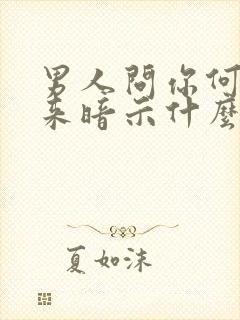 男人問你何
來暗示什麼
夏如沫